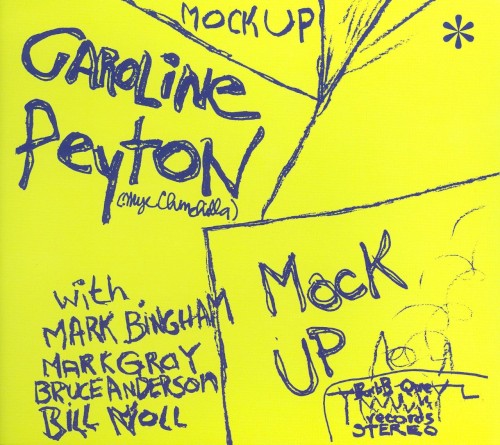 MOCKUP
*
CAROLINE
PEYTON
MOCK
UP
with
MARK BINGHAM
MARK GRAY
BRUCE ANDERSON
BILL NOLL
records
STEREO